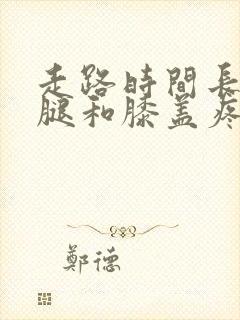 走路時間長
腿和膝盖疼
鄭德